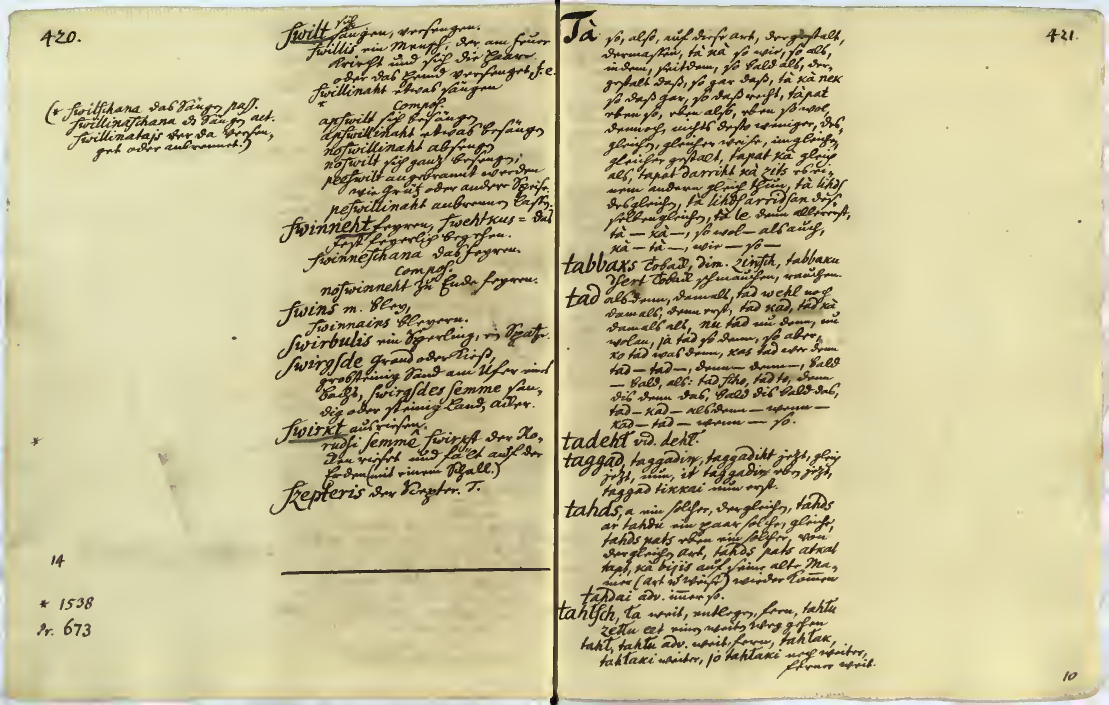 420.
(* swilschana das Sängen pass.
swillinaschana das Sängen act.
swillinatajs der da versen,
get oder anbrennet.)
*
14
* 1538
dr. 673
swilt sich sängen, versengen.
swillis ein Mensch, der am Feuer
kriecht und sich die Haare
oder das Hemd versenget, s. e.
swillinaht etwas sängen
* Compos.
apswilt sich besängen
apswillinaht etwas besängen
noswillinaht absengen
noswilt sich ganz besengen,
peeswilt angebrannt werden
wie Grütz oder andere Speise.
peeswillinaht anbrennen lassen.
swinneht feyren, swehtkus = das
Fest feyerlich begehen.
swinneschana das feyren.
Compos.
noswinneht zu Ende feyren.
swins m. Bley,
swinnains bleyern.
swirbulis ein Sperling, ein Spatz.
swirgsde Grand oder Kieß,
grobsteinig Sand am Ufer eines
Bachs, swirgsdes semme san,
dig oder steinig Land, Acker.
swirkt ausriesen.
rudsi semmê swirkst der Ro,
cken rieset und fält auf der
Erden mit einem Schall.)
szepteris der Scepter. T.
421.
Tà so, also, auf diese art, dergestalt,
dermaßen, tà kà so wie, so als,
indem, seitdem, so bald als, der,
gestalt daß, so gar daß, tà kà nek
so daß gar, so daß recht, tàpat
eben so, eben also, eben so wol,
dennoch, nichts desto weniger, des,
gleichen, gleicher weise, imgleichen,
gleicher gestalt, tapat kà gleich
als, tapat darriht kà zits ei,
nem andern gleich thun, tà lihds
desgleichen, tà lihds arridsan des,
selben gleichen, tà le denn allererst,
tà — kà —, so wol — als auch,
kà — tà —, wie — so —
tabbaks Toback, dim. zinsch, tabbaku
dsert Toback schmauchen, rauchen.
tad alsdenn, damals, tad wehl noch
damals, denn erst, tad kad, tad kà
damals als, nu tad nu denn, nu
wolan, ja tad so denn, so aber,
ko tad was denn, kas tad wer denn
tad — tad —, denn — denn —, bald
— bald, als: tad scho, tad to, denn
dis denn das, bald dis bald das,
tad — kad — alsdenn — wenn —
kad — tad — wenn — so.
tadeht vid. deht.
taggad, taggadin, taggadikt jetzt, gleich
jetzt, nun, it taggadin eben jetzt,
taggad tikkai nun erst.
tahds, a ein solcher, dergleichen, tahds
ar tahdu ein paar solche, gleiche,
tahds pats eben ein solcher, von
dergleichen art, tahds pats atkal
tapt, kà bijis auf seine alte Ma,
nier (art u weise) wieder kommen
tahdai adv. immer so.
tahlsch, ta weit, entlegen, fern, tahlu
zellu eet einen weiten Weg gehen
tahl, tahlu adv. weit, fern, tahlak,
tahlaki weiter, jo tahlaki noch weiter,
ferner weit.
10